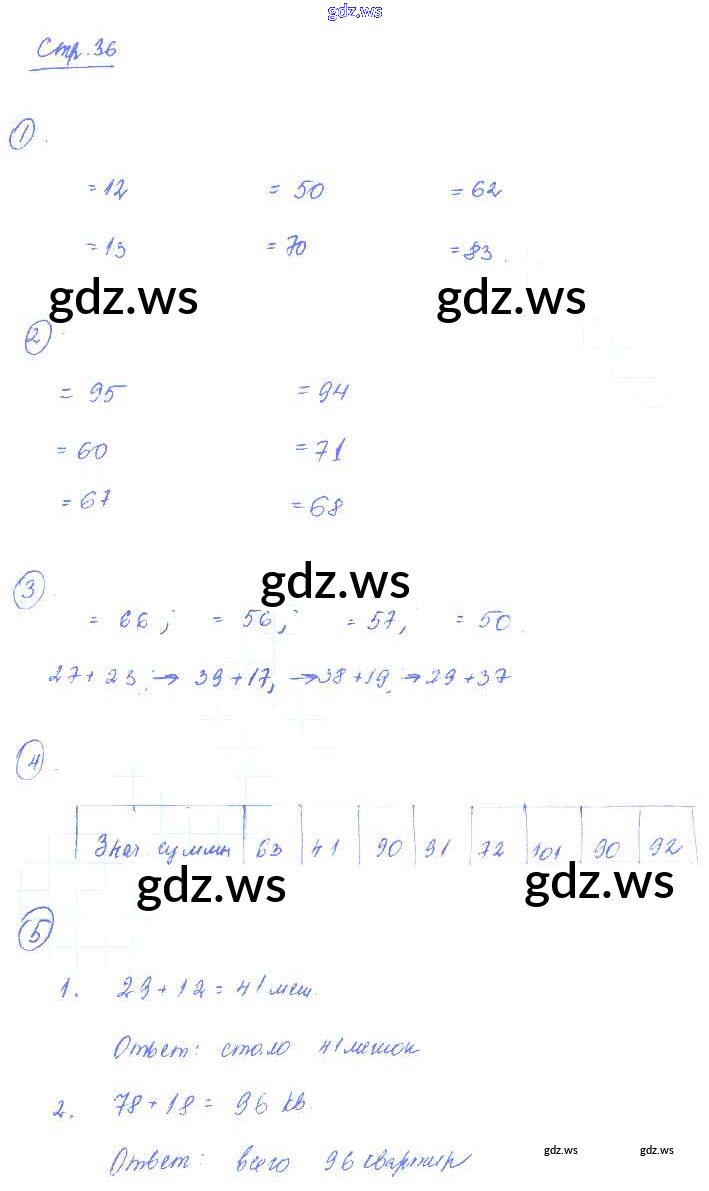 gdz.ws
Стр. 36
1.
= 12 = 50 = 62
= 13 = 70 = 83.
gdz.ws gdz.ws
2.
= 95 = 94
= 60 = 71
= 67 = 68
gdz.ws
3.
= 66; = 56; = 57; = 50.
27 + 23; → 39 + 17, → 38 + 19; → 29 + 37
4.
Знач. суммы 63 41 90 91 72 101 90 92
gdz.ws gdz.ws
5
1. 29 + 12 = 41 меш.
Ответ: стало 41 мешок
2. 78 + 18 = 96 кв.
Ответ: всего 96 квартир
gdz.ws gdz.ws